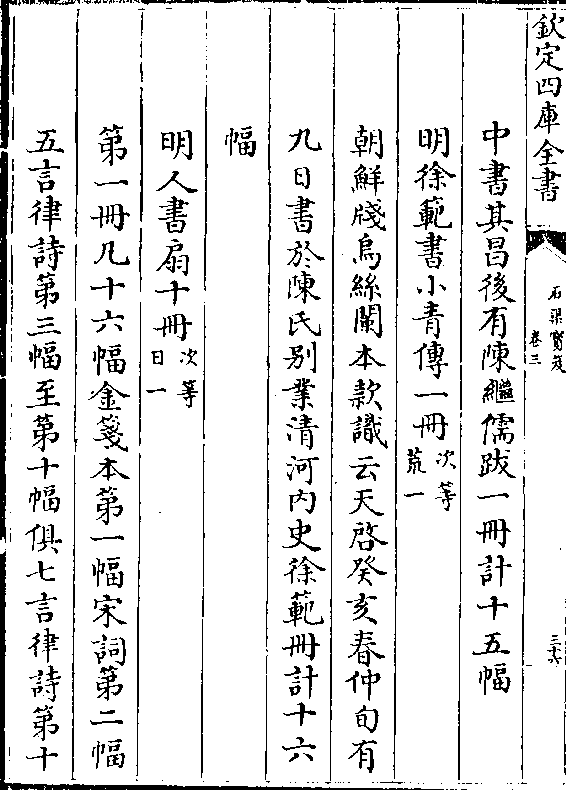 欽定四庫全書
石渠寶笈
卷三
三十六
中書其昌後有陳繼儒跋一冊計十五幅
明徐範書小青傳一冊次等荒一
朝鮮牋烏絲闌本款識云天啓癸亥春仲旬有
九日書於陳氏别業清河内史徐範冊計十六
幅
明人書扇十冊次等日一
第一冊凡十六幅金箋本第一幅宋詞第二幅
五言律詩第三幅至第十幅俱七言律詩第十